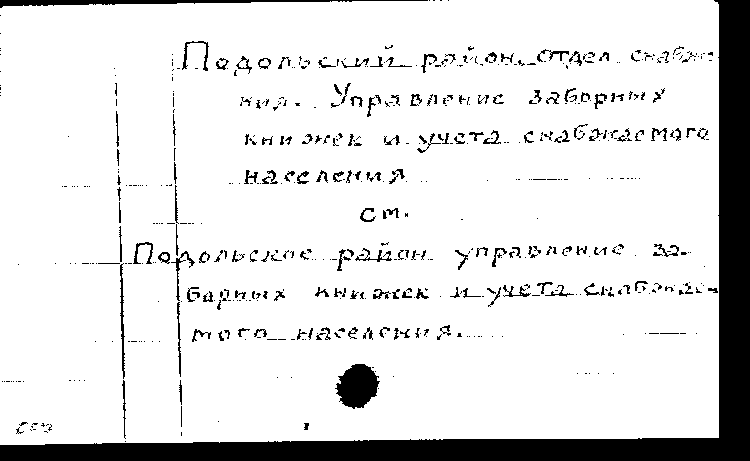 Подольский район. Отдел снабже-
ния. Управление заборных
книжек и учета снабжаемого
населения
см.
Подольское район управление за-
борных книжек и учета снабжае-
мого населения.